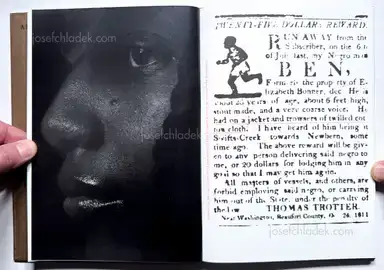 josefchladek.com
josefchladek.com
TWENTY-FIVE DOLLARS REWARD.
RUN AWAY from the
Subscriber, on the
of last, my
BEN,
the property of E-
lizabeth Bonner, dec. He is
about years of age, about 6 feet high,
stout made, and a very coarse voice. He
had on a jacket and trowsers of twilled cot
ton cloth. I have heard of him being in
Swifts-Creek towards Newbern, some
time ago. The above reward will be giv
en to any person delivering said negro to
me, or 20 dollars for lodging him in any
gaol so that I may get him again.
All masters of vessels, and others, are
forbid employing said negro, or carrying
him out of the State, under the penalty of
the law
THOMAS TROTTER.
Near Washington, Beaufort County, 26. 1811
josefchladek.com
josefchladek.com